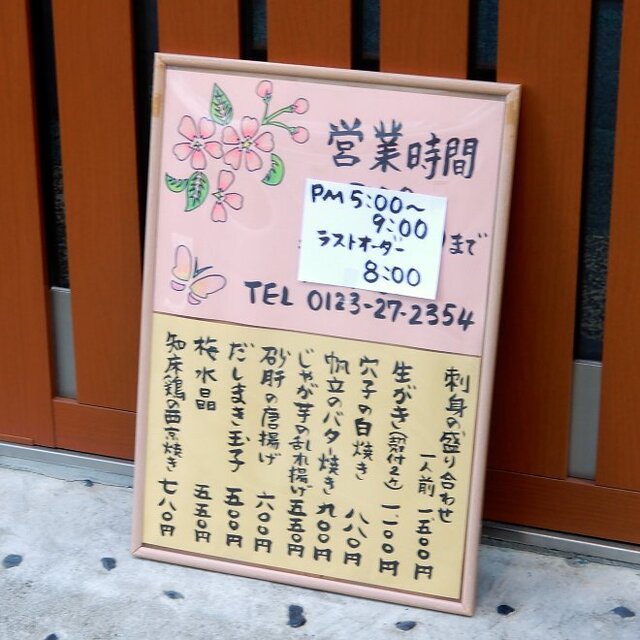 営業時間
PM5:00〜
9:00
ラストオーダー
8:00
まで
TEL 0123-27-2354
刺身の盛り合わせ
一人前 一五〇〇円
生がき(殻付2ヶ) 一一〇〇円
穴子の白焼き 八八〇円
帆立のバター焼き 九〇〇円
じゃが芋の乱れ揚げ 五五〇円
砂肝の唐揚げ 六〇〇円
だしまき玉子 五〇〇円
梅水晶 五五〇円
知床鶏の西京焼き 七八〇円